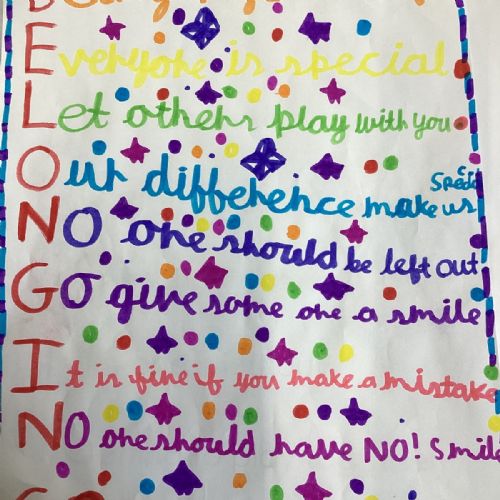 B
Everyone is special
Let others play with you
Our difference make us special
No one should be left out
Go give some one a smile
It is fine if you make a mistake
No one should have NO! Smile